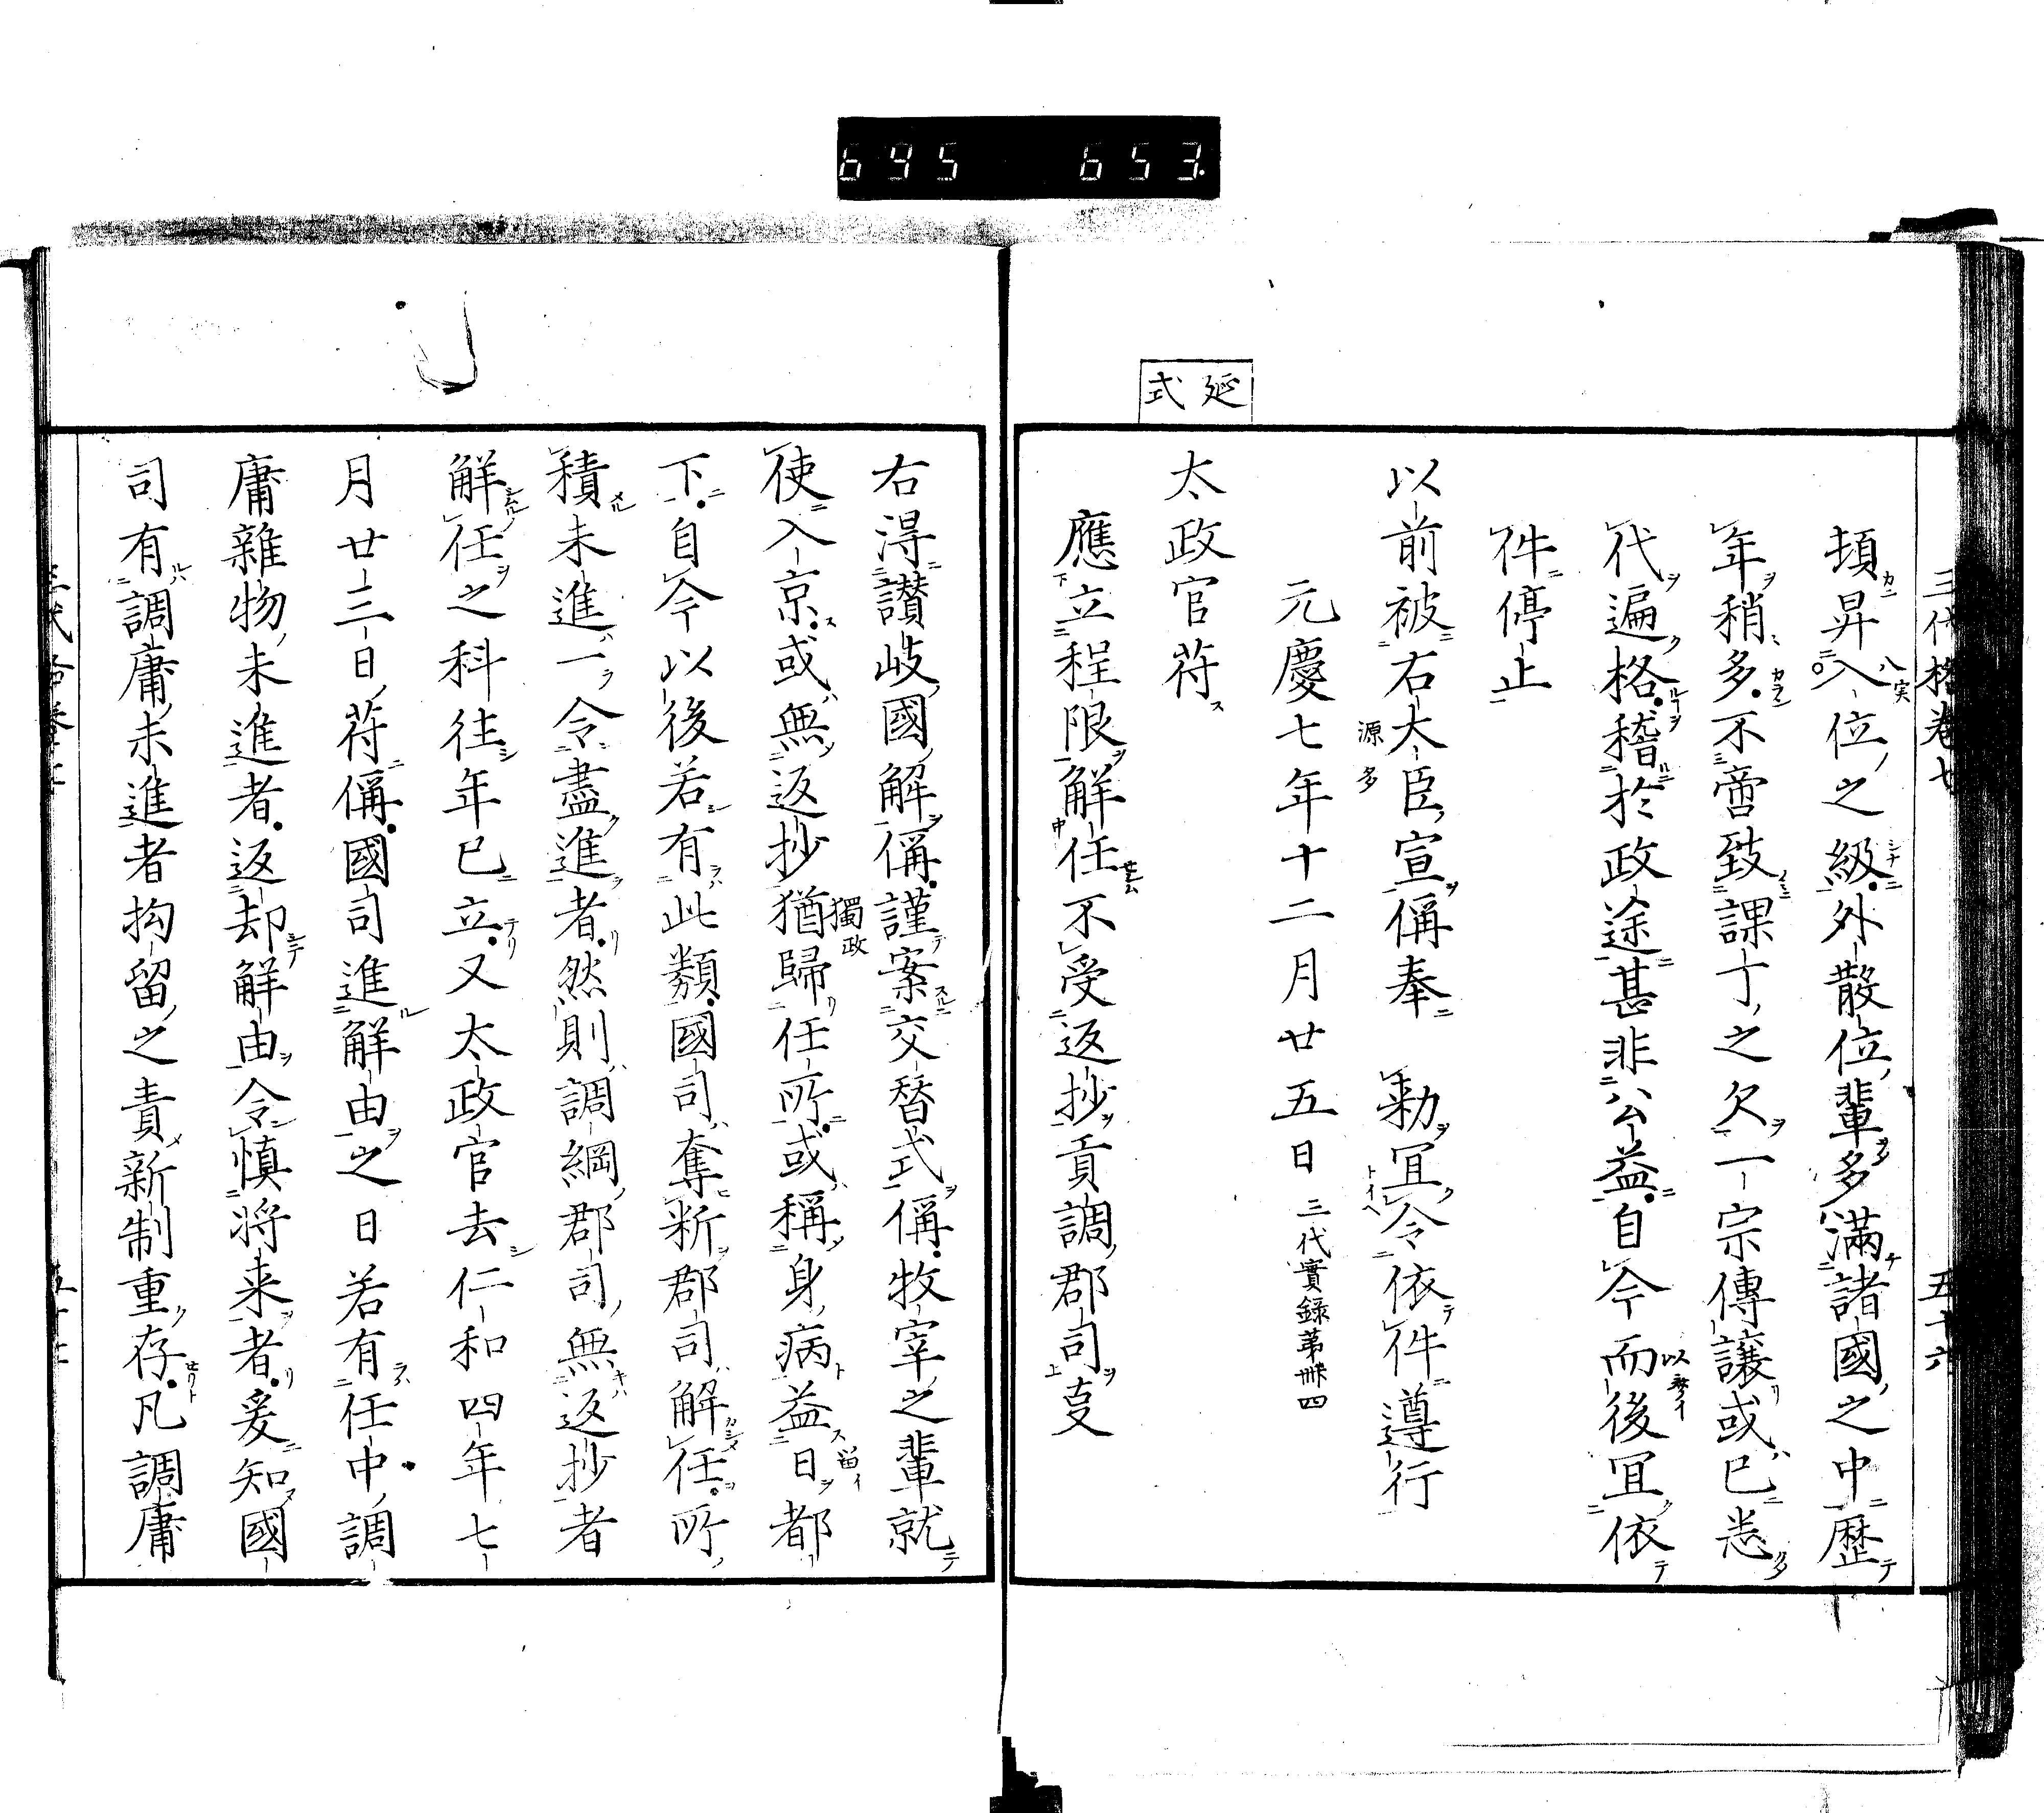 695 653
延式
三代格卷七 五十六
頓昇入位之級外散位輩多滿諸國之中歷
年稍多不啻致課丁之欠一宗傳讓或已悉
代遍格稽於政途甚非公益自今而後冝依
件停止
以前被右大臣宣偁奉 勅冝令依件遵行
源多
元慶七年十二月廿五日 三代實録第卌四
太政官符
應立程限解任不受返抄貢調郡司㕝
右得讃岐國解偁謹案交替式偁牧宰之輩就
使入京或無返抄猶歸任所或稱身病益日都
獨政
下自今以後若有此類國司奪䉼郡司解任所
積未進一令盡進者然則調綱郡司無返抄者
解任之科往年已立又太政官去仁和四年七
月廿三日符偁國司進解由之日若有任中調
庸雜物未進者返却解由令慎将来者爰知國
司有調庸未進者拘留之責新制重存凡調庸